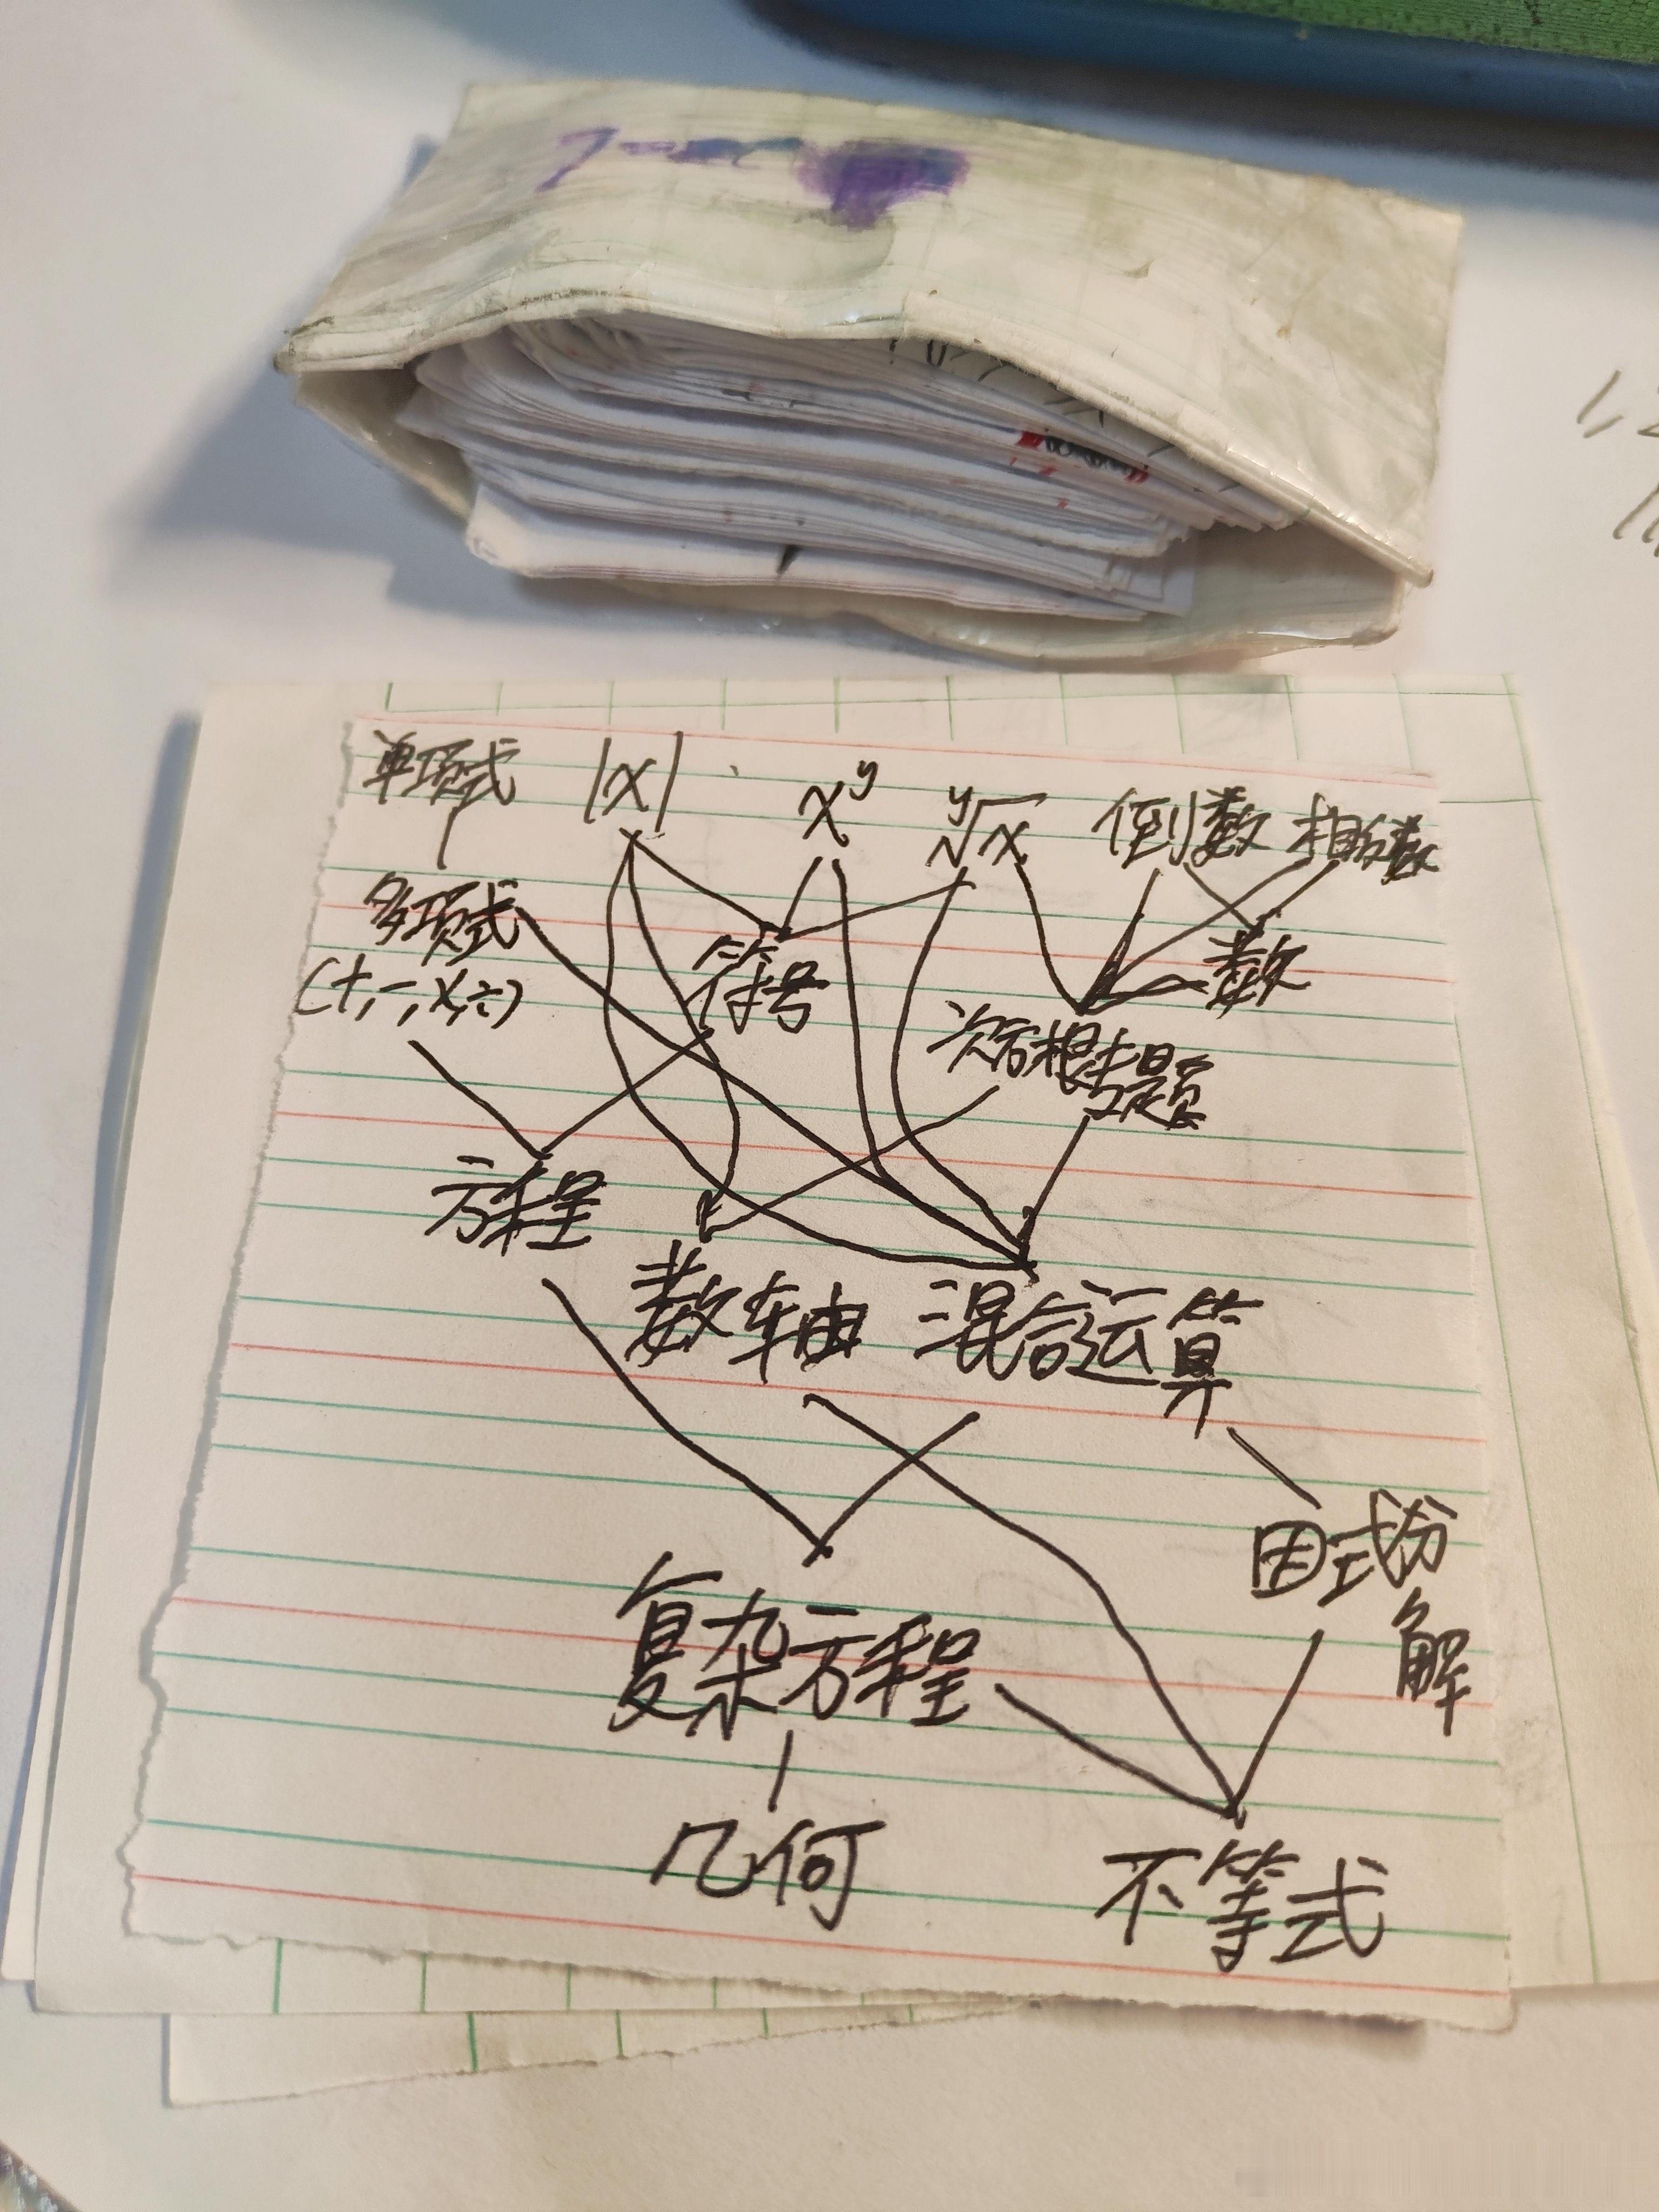 单项式 |x| x^y ʸ√x 倒数 相反数
多项式
(+,-,×,÷) 符号 数
次方根
方程
数轴 混合运算
因式分
解
复杂方程
几何 不等式